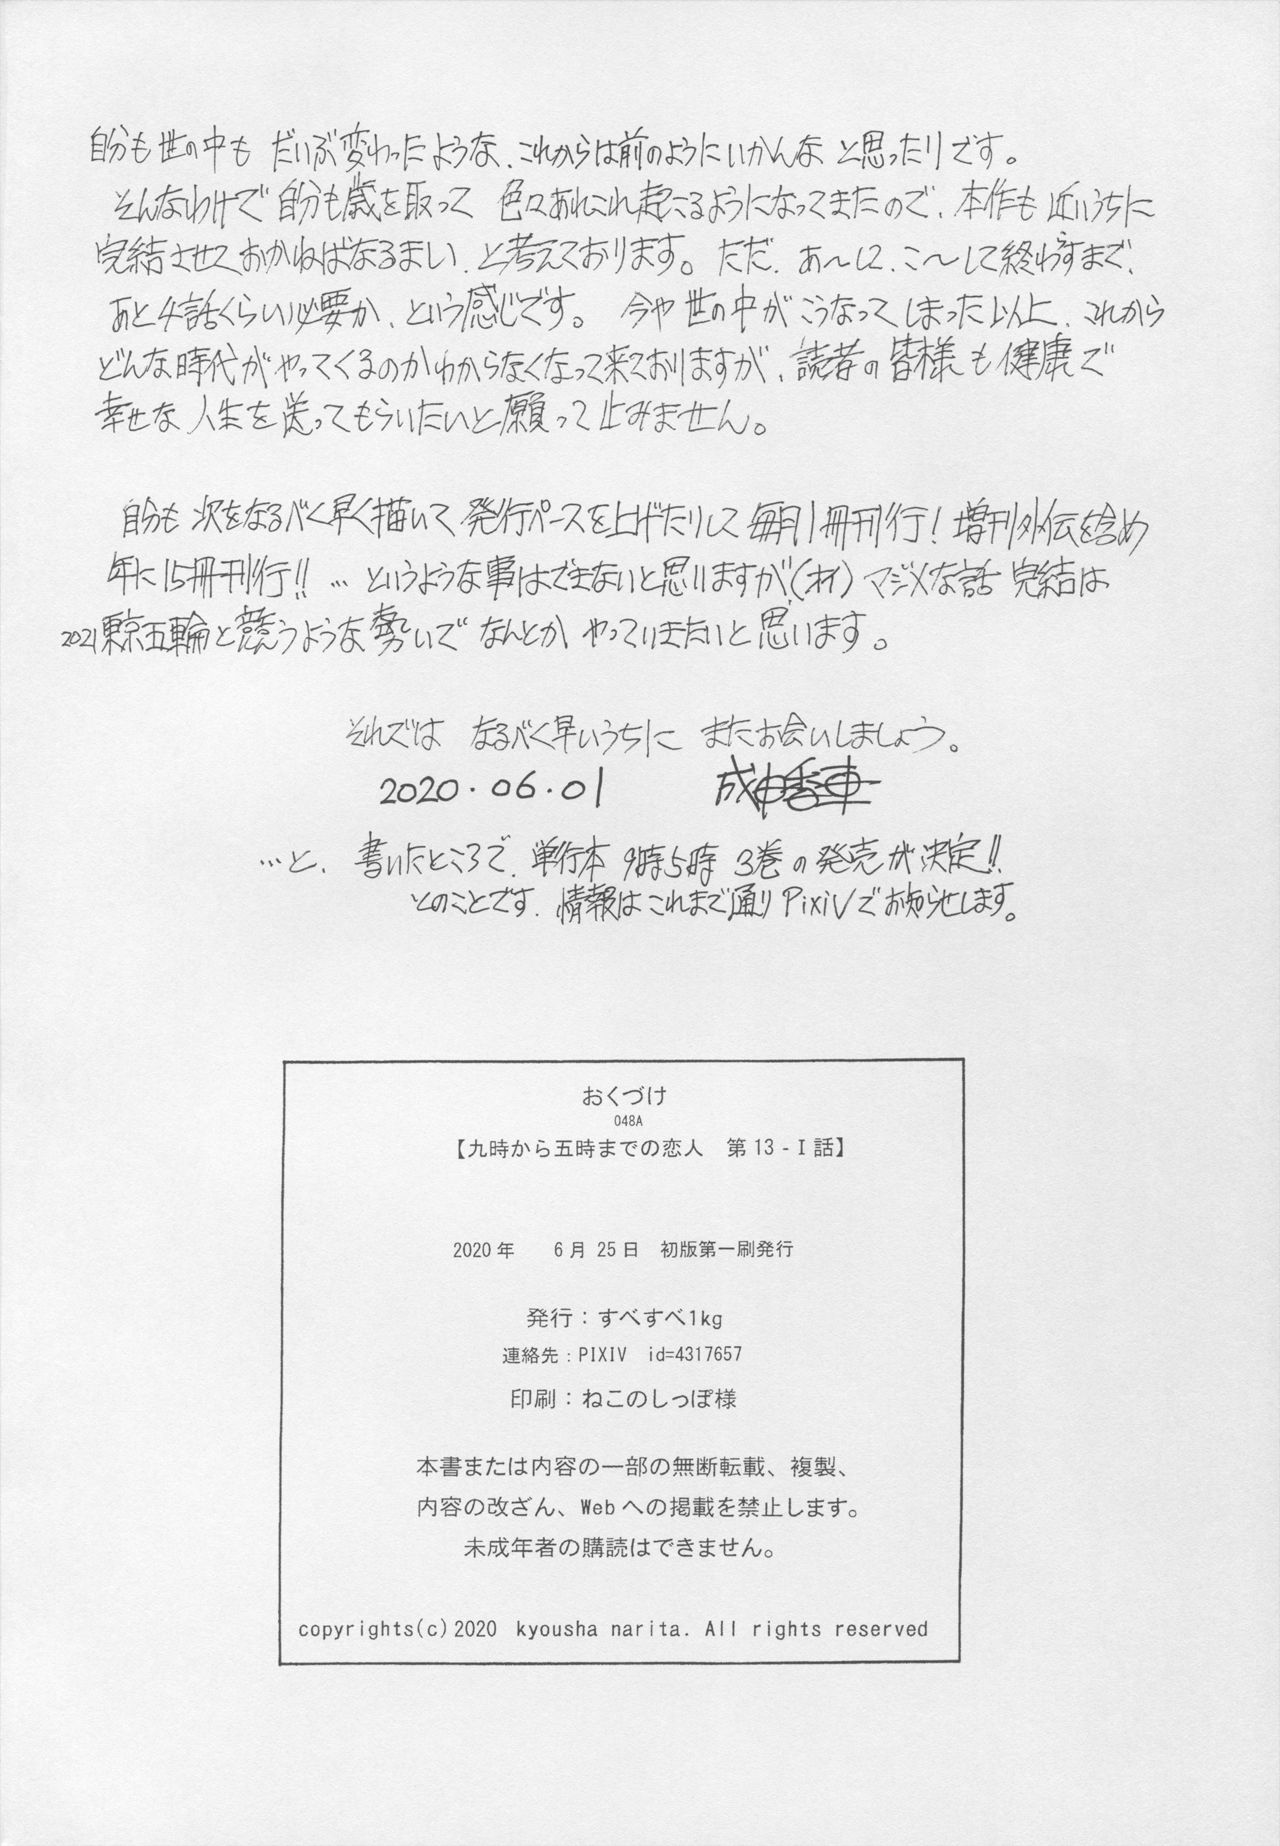 自分も世の中も だいぶ変わったような、これからは前のようにいかんな と思ったりです。
そんなわけで 自分も歳を取って 色々あれこれ起こるようになってきたので、本作も 近いうちに
完結させておかねばなるまい、と考えております。ただ、あ〜して、こ〜して終わらすまで、
あと4話くらい必要か、という感じです。 今や 世の中が こうなってしまった以上、これから
どんな時代が やってくるのかわからなくなって来ておりますが、読者の皆様も健康で
幸せな 人生を送ってもらいたいと願って止みません。
自分も 次をなるべく早く描いて 発行ペースを上げたりして 毎月1冊刊行! 増刊外伝を含め
年に15冊刊行!! … というような事はできないと思いますが(オイ) マジメな話 完結は
2021東京五輪と競うような勢いで なんとか やっていきたいと思います。
それでは なるべく早いうちに またお会いしましょう。
2020.06.01 成田香車
…と、書いたところで、単行本 9時5時 3巻の発売が決定!!
とのことです、情報はこれまで通り PixiVでお知らせします。
おくづけ
048A
【九時から五時までの恋人 第13-I話】
2020年 6月25日 初版第一刷発行
発行:すべすべ1kg
連絡先:PIXIV id=4317657
印刷:ねこのしっぽ様
本書または内容の一部の無断転載、複製、
内容の改ざん、Webへの掲載を禁止します。
未成年者の購読はできません。
copyrights(c)2020 kyousha narita. All rights reserved